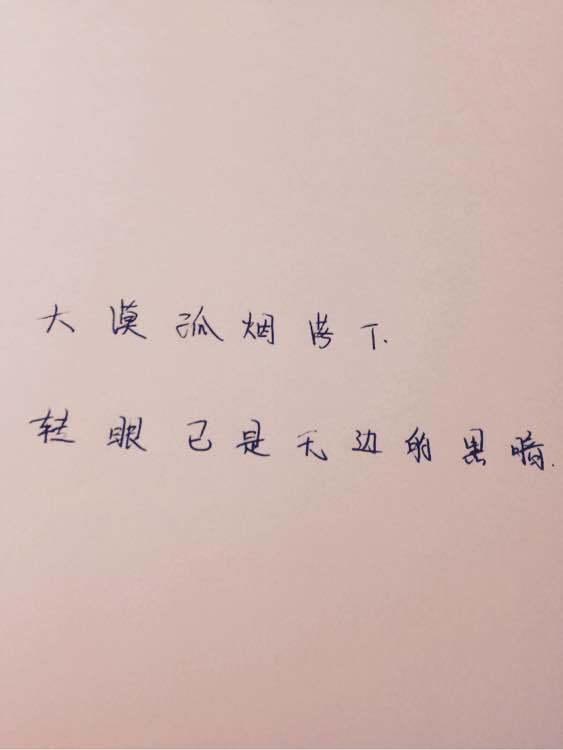 大漠孤烟落下.
转眼已是无边的黑暗.